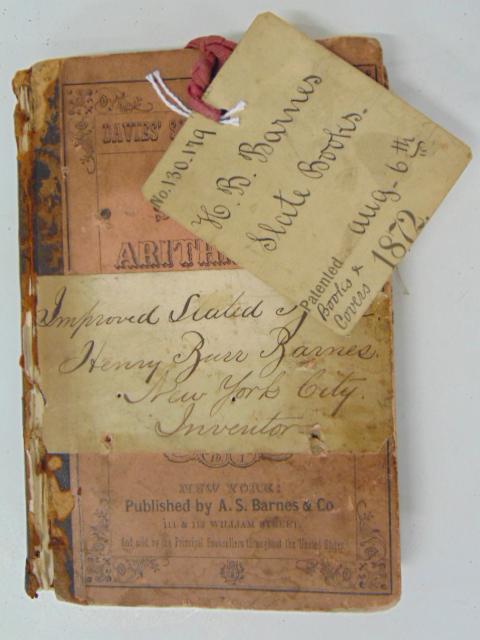 No. 130.179
H. B. Barnes
Slate Books.
Patented Aug- 6th
1872.
Books &
Covers
DAVIES' S
ARITH
Improved Slated
Henry Burr Barnes.
New York City.
Inventor
NEW YORK:
Published by A. S. Barnes & Co
111 & 113 WILLIAM STREET,
And sold by the Principal Booksellers throughout the United States